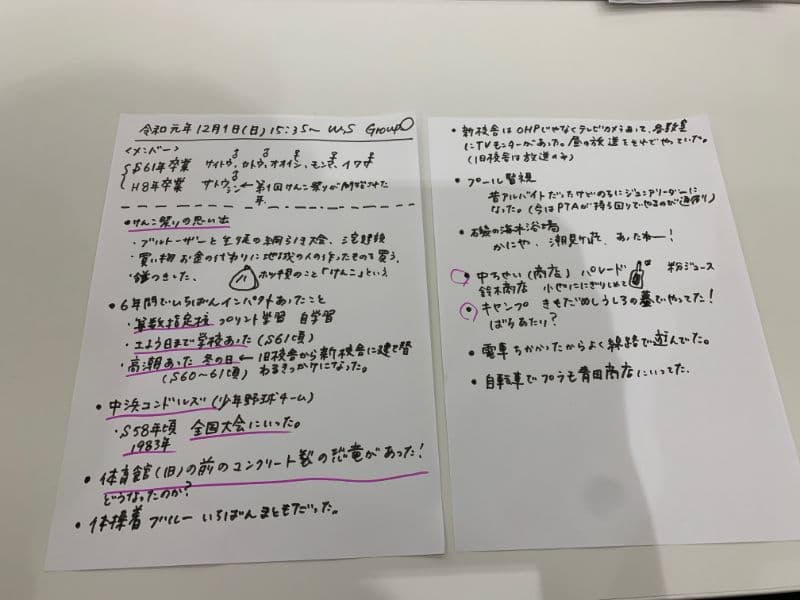 令和元年12月1日(日) 15:35〜 W.S Group
<メンバー>
S61年卒業 サイトウ、カトウ、オオイシ、モンマ、イワマ
H8年卒業 サトウシン ← 第1回けんこ祭りが開催された
年.
・けんこ祭りの思い出
・ブルトーザーと生徒の綱引き大会、
・買い物 お金の代わりに地域の人の作ったものを買う.
・餅つきした、 ホッキ貝のこと「けんこ」という
・6年間でいちばんインパクトあったこと
・算数指定校 プリント学習 自学習
・土よう日まで学校あった (S61頃)
・高潮あった 冬の日 ← 旧校舎から新校舎に建て替
(S60〜61頃) わるきっかけになった。
・中浜コンドルズ (少年野球チーム)
・S58年頃 全国大会にいった。
1983年
・体育館(旧)の前のコンクリート製の恐竜があった!
どうなったのか?
・体操着 ブルー いちばんまともだった。
・新校舎はOHPじゃなくテレビカメラあって、各教室
にTVモニターがあった。昼の放送をそれでやっていた。
(旧校舎は放送のみ)
・プール監視
昔アルバイトだったけどのちにジュニアリーダーに
なった。(今はPTAが持ち回りでやるのが通例)
・磯の海水浴場
かにや、潮見荘、あったねー!
・中ちせい (商店) パレード 粉ジュース
鈴木商店 小ぜににぎりしめて
・キャンプ きもだめしうしろの墓でやってた!
ばちあたり?
・電車ちかかったからよく線路で遊んでた。
・自転車でプラモ青田商店にいってた